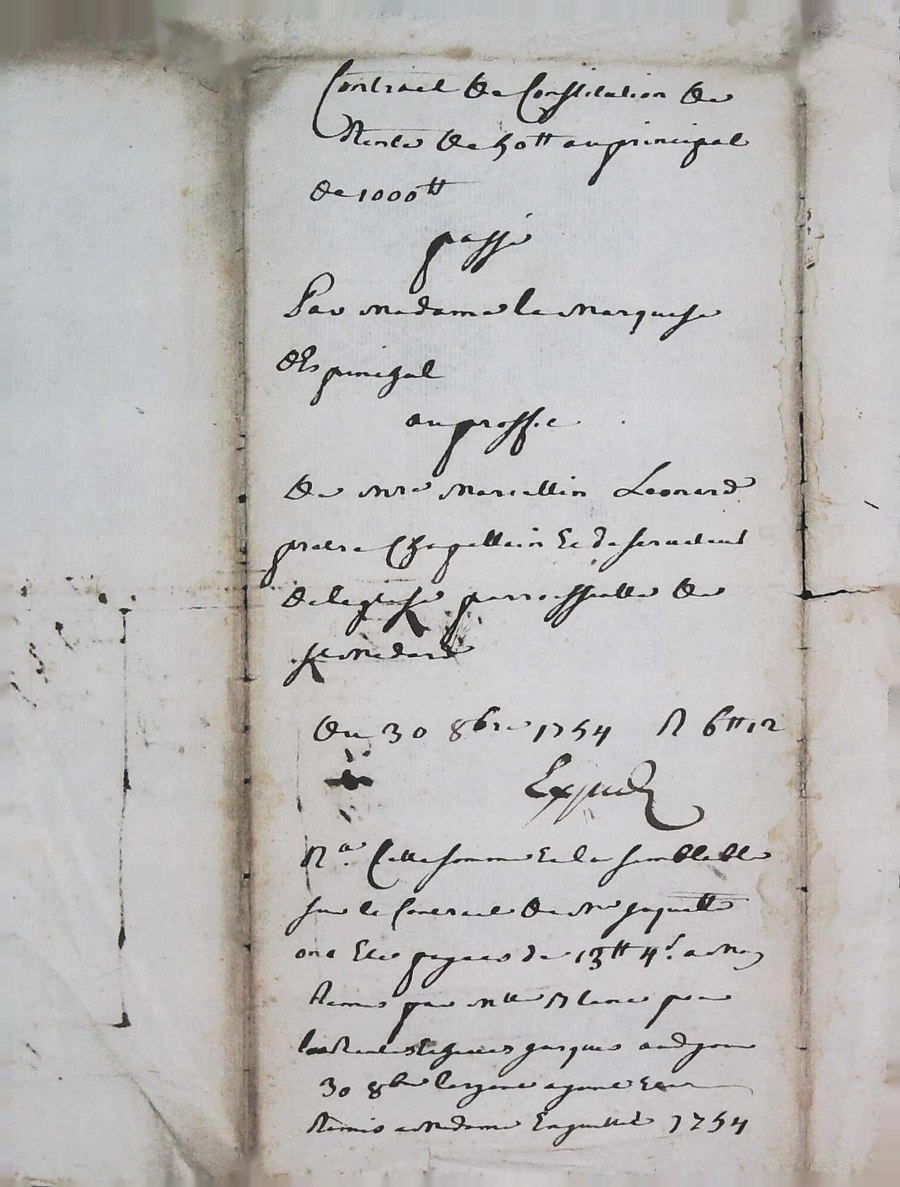 Contract de Constitution de
Rente de 50tt au principal
de 1000tt
passé
Par Madame la Marquise
d'Espinchal
au proffit
de Mre Marcellin Leonard
pretre Chapellain Et deserviteur
de leglise parroissialle de
st Medard
Du 30 8bre 1754 R 6tt 12
Expedié
Na. Cette somme Et la semblable
sur le Contract de Mr
ont Ete payées de 13tt 4s. a Moy
Remis par Mlle Blanc pour
jusques audjour
30 8bre
Remis a Madame 1754